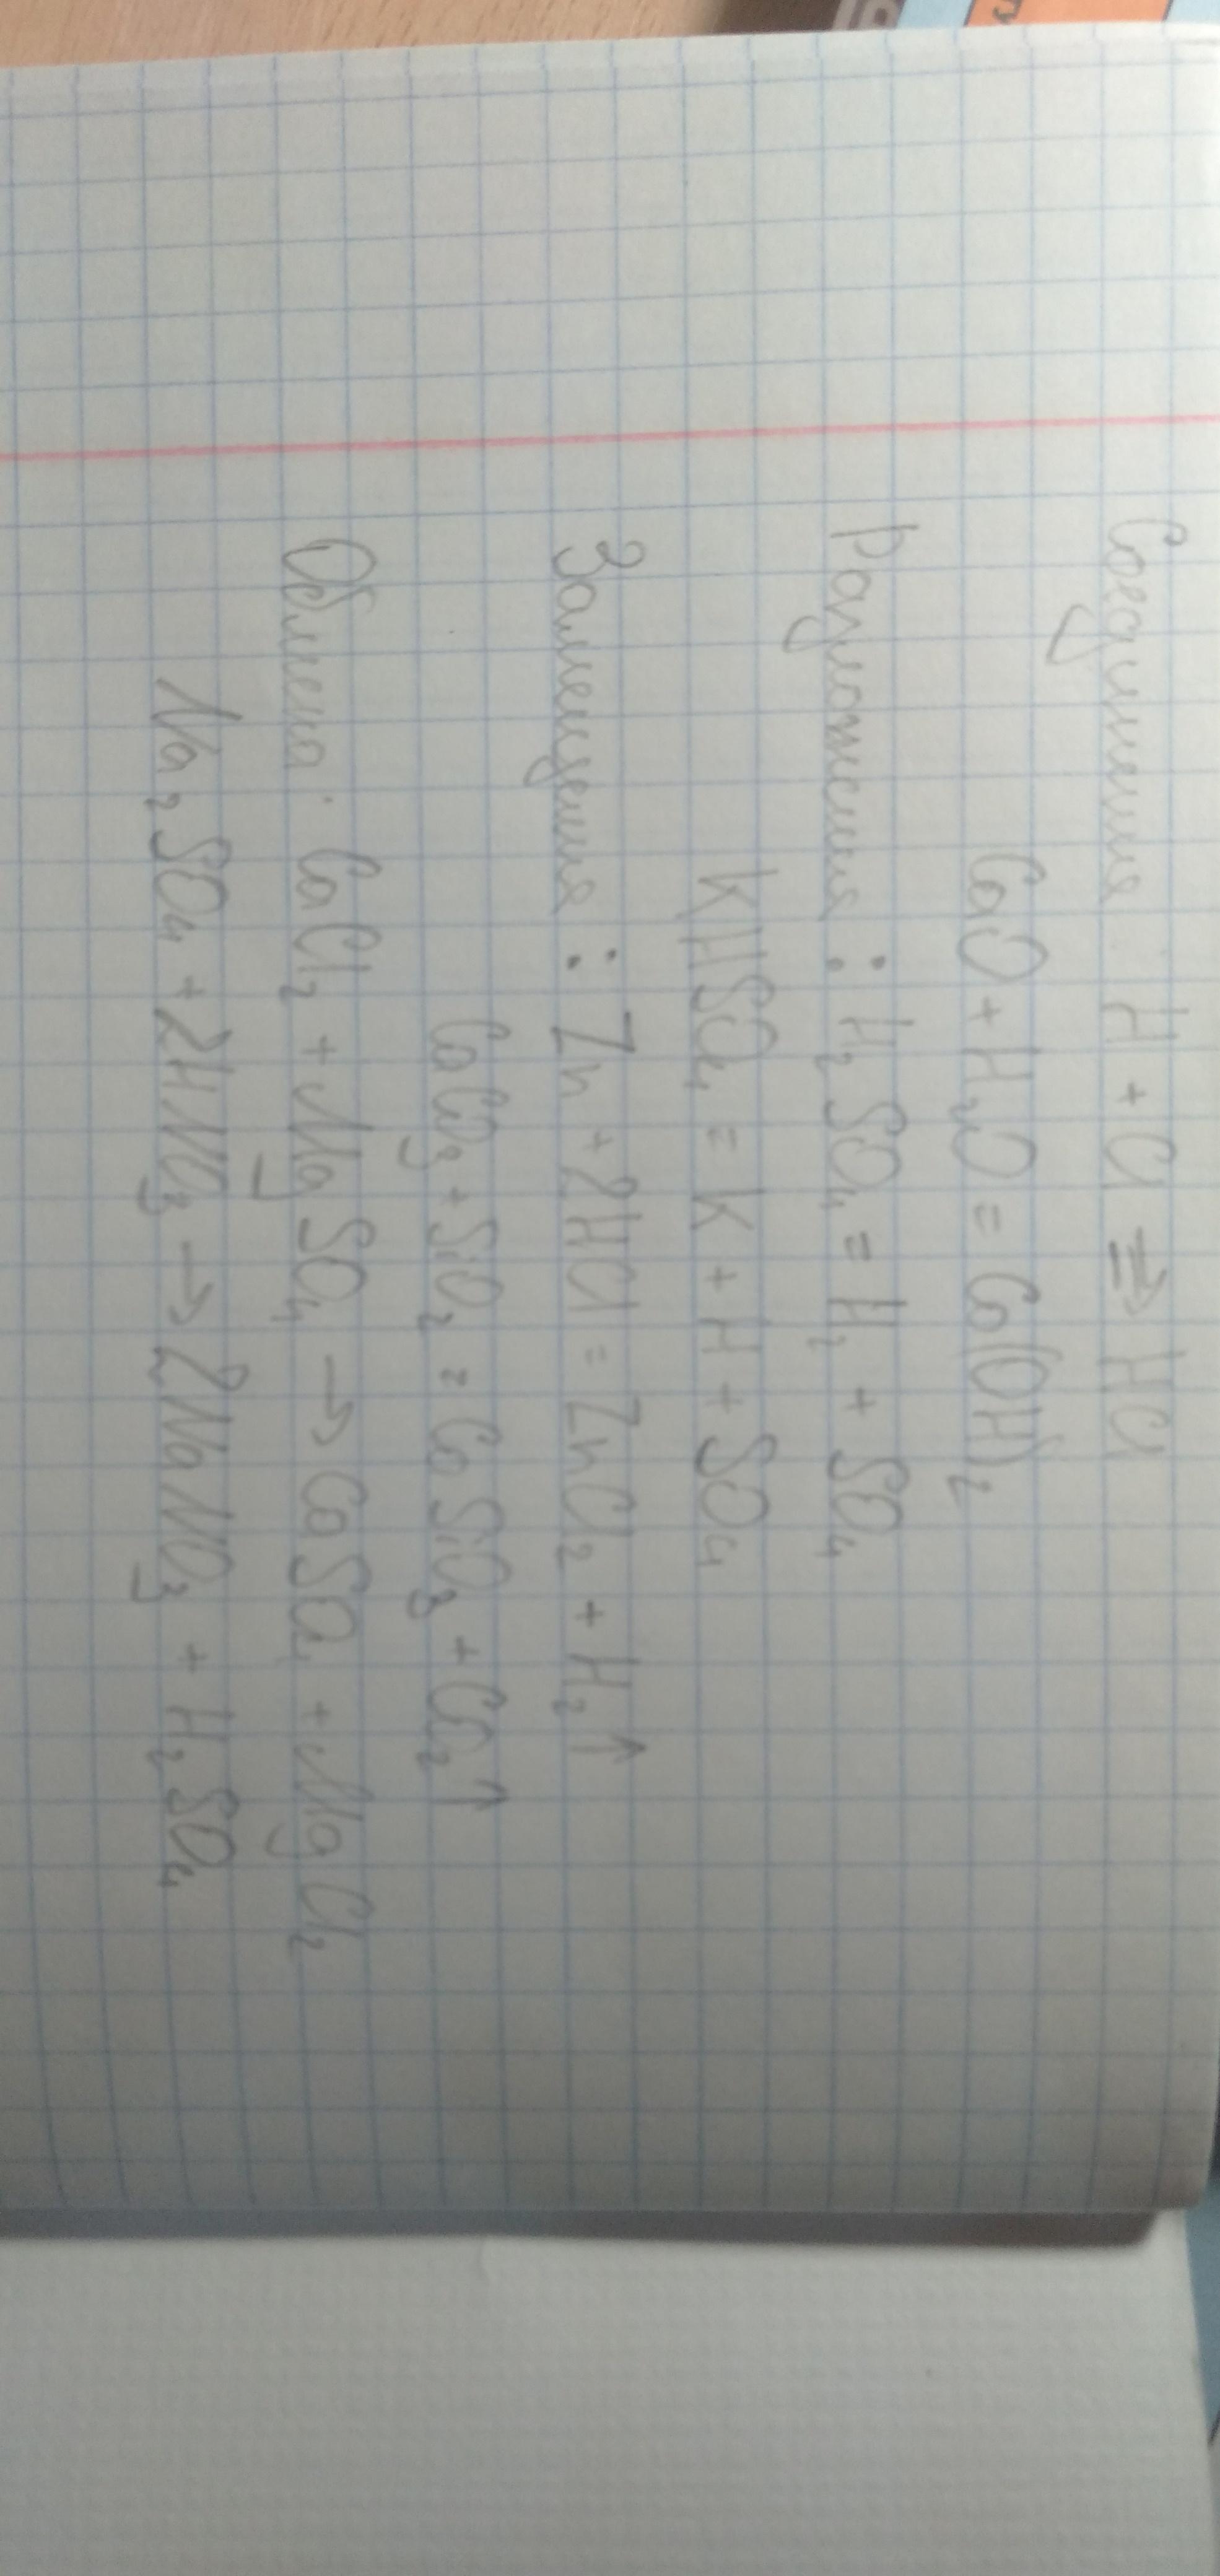 Соединения H + Cl ⇒ HCl
CaO + H₂O = Ca(OH)₂
Разложения : H₂SO₄ = H₂ + SO₄
KHSO₄ = K + H + SO₄
Замещения : Zn + 2HCl = ZnCl₂ + H₂↑
CaCO₃ + SiO₂ = CaSiO₃ + CO₂↑
Обмена: CaCl₂ + MgSO₄ → CaSO₄ + MgCl₂
Na₂SO₄ + 2HNO₃ → 2NaNO₃ + H₂SO₄